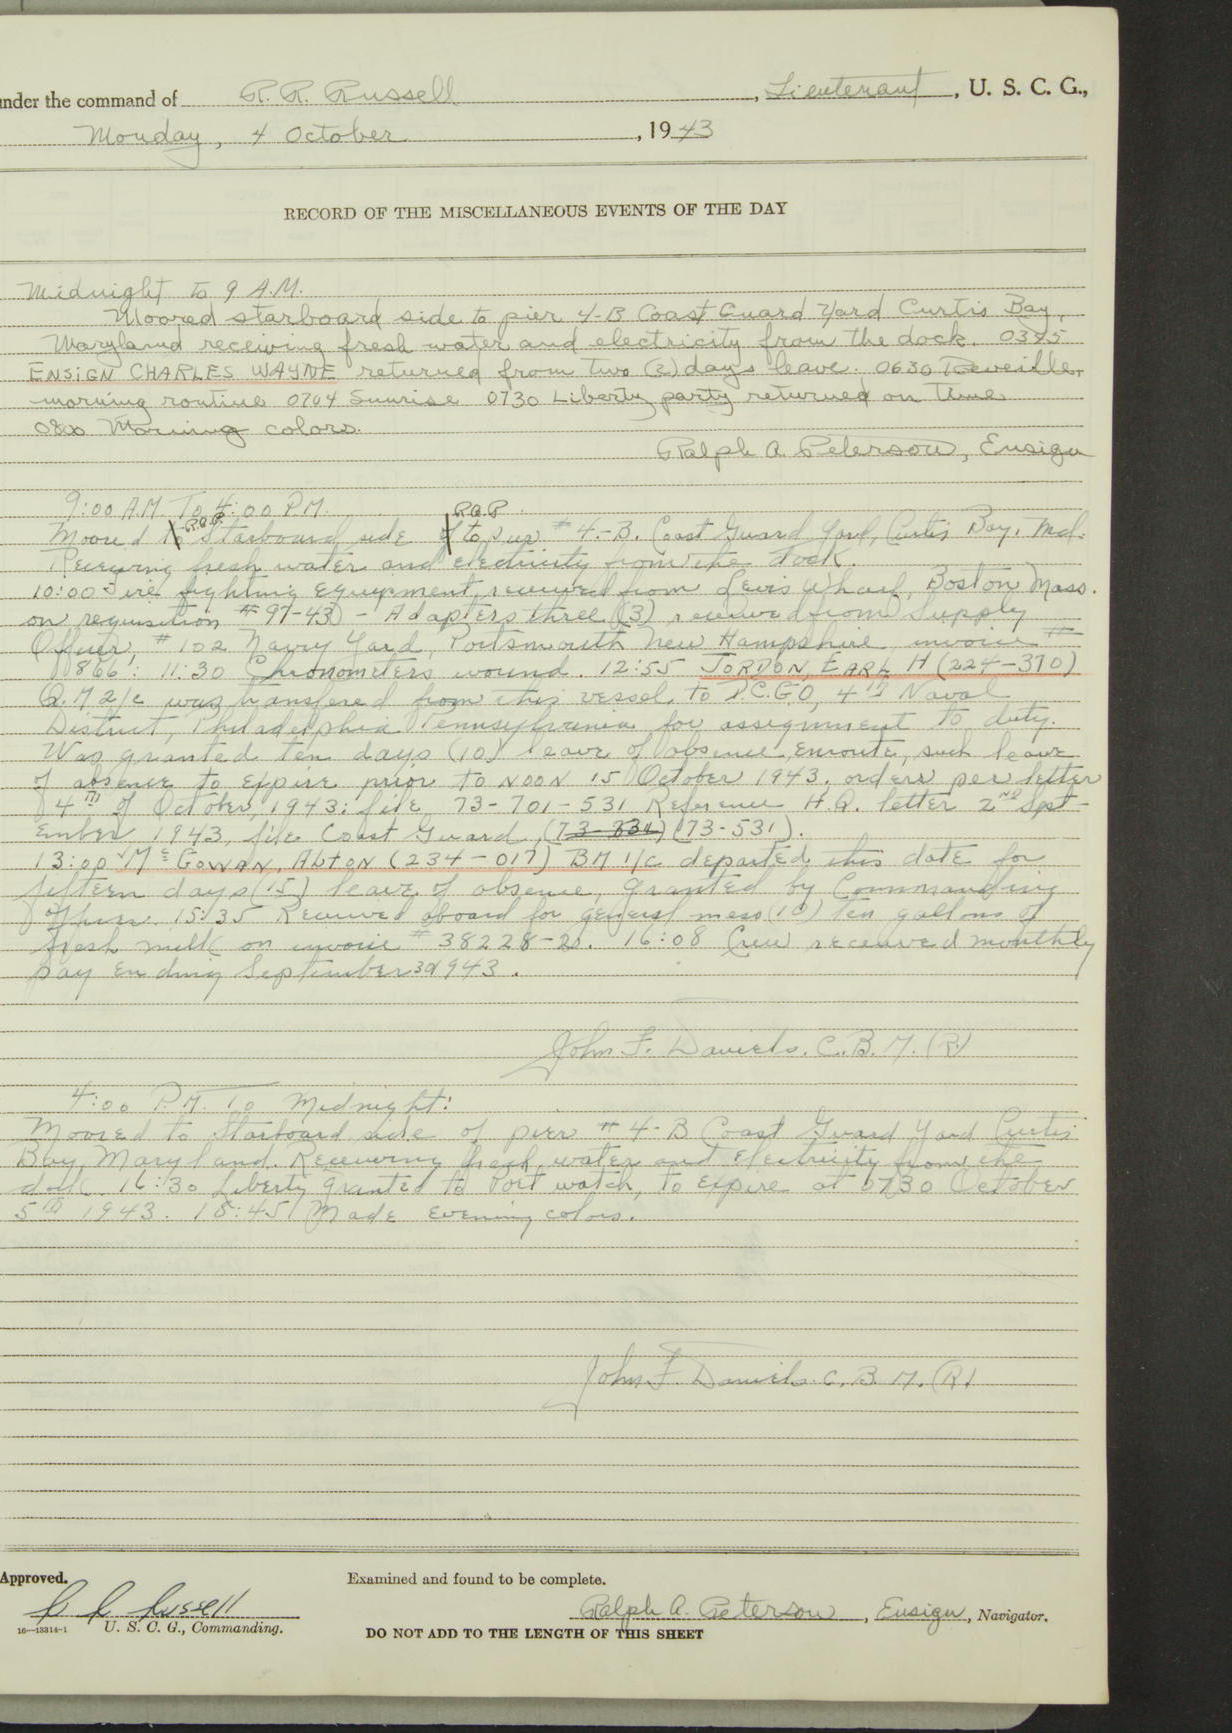 under the command of R. R. Russell, Lieutenant, U. S. C. G.,
Monday, 4 October, 1943
RECORD OF THE MISCELLANEOUS EVENTS OF THE DAY
Midnight to 9 A.M.
Moored starboard side to pier 4-B Coast Guard Yard Curtis Bay,
Maryland receiving fresh water and electricity from the dock. 0345
ENSIGN CHARLES WAYNE returned from two (2) days leave. 0630 Reveille,
morning routine 0704 Sunrise 0730 Liberty party returned on time
0800 Morning colors.
Ralph A. Peterson, Ensign
9:00 A.M. To 4:00 P.M.
R.A.P. R.A.P.
Moored to Starboard side of to pier #4-B. Coast Guard Yard, Curtis Bay, Md.
Receiving fresh water and electricity from the dock.
10:00 Fire fighting equipment, received from Lewis Wharf, Boston Mass.
on requisition #97-43) - Adapters three (3) received from Supply
Officer, #102 Navy Yard, Portsmouth New Hampshire invoice #
866. 11:30 Chronometers wound. 12:55 JORDON, EARL H (224-370)
Q.M 2/c was transfered from this vessel, to D.C.G.O, 4TH Naval
District, Philadelphia Pennsylvania for assignment to duty.
Was granted ten days (10) leave of absence, enroute, such leave
of absence to expire prior to NOON 15 October 1943, orders per letter
4TH of October, 1943. file 73-701-531 Reference H.Q. letter 2ND Sept-
ember 1943, file Coast Guard, (73-831) (73-531).
13:00 McGOWAN, ALTON (234-017) BM 1/c departed this date for
fifteen days (15) leave of absence, granted by Commanding
Officer. 15:35 Received aboard for general mess (10) ten gallons of
fresh milk on invoice #38228-20. 16:08 Crew received monthly
pay ending September 30 1943.
John F. Daniels. C.B.M. (R)
4:00 P.M. To Midnight:
Moored to Starboard side of pier #4-B Coast Guard Yard Curtis
Bay, Maryland. Receiving fresh water and electricity from the
dock. 16:30 Liberty granted to Port watch, to expire at 0730 October
5TH 1943. 18:45 Made evening colors.
John F. Daniels. C.B.M. (R)
Approved.
Examined and found to be complete.
R R Russell
Ralph A. Peterson, Ensign, Navigator.
16—13314-1 U. S. C. G., Commanding.
DO NOT ADD TO THE LENGTH OF THIS SHEET